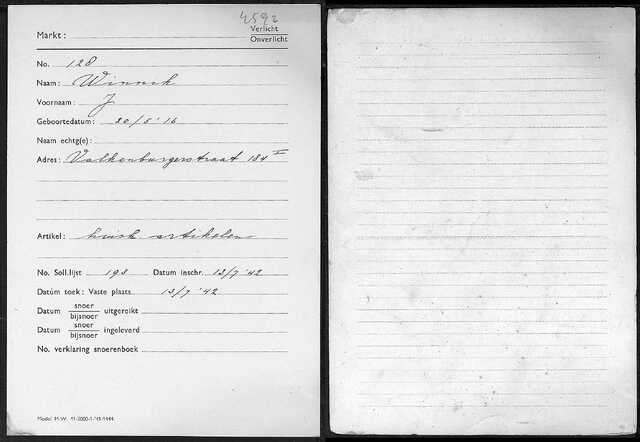 4592
Markt:
Verlicht
Onverlicht
No. 128
Naam: Winnik
Voornaam: J
Geboortedatum: 20/5'16
Naam echtg(e):
Adres: Valkenburgerstraat 184 I
Artikel: huish artikelen
No. Soll.lijst 198 Datum inschr. 13/7'42
Datum toek: Vaste plaats 13/7'42
Datum snoer bijsnoer uitgereikt
Datum snoer bijsnoer ingeleverd
No. verklaring snoerenboek
Model M.W.